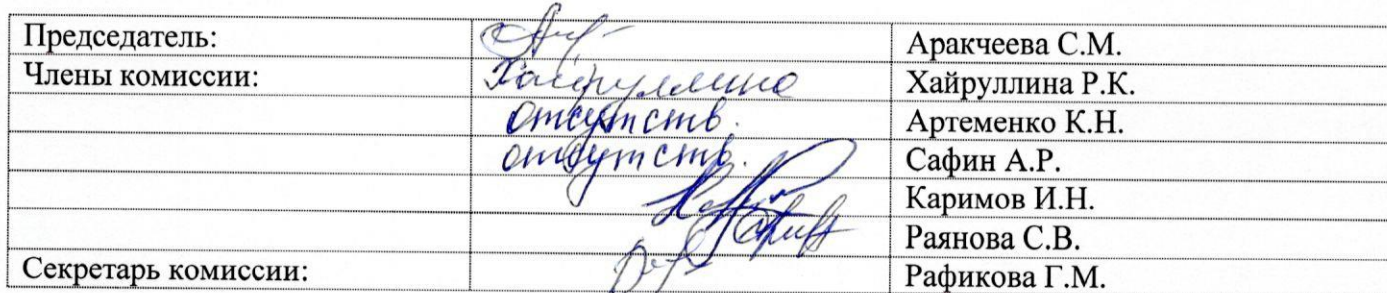 Председатель: Аракчеева С.М.
Члены комиссии: Хайруллина Хайруллина Р.К.
отсутств. Артеменко К.Н.
отсутств. Сафин А.Р.
Каримов И.Н.
Раянова С.В.
Секретарь комиссии: Рафикова Г.М.